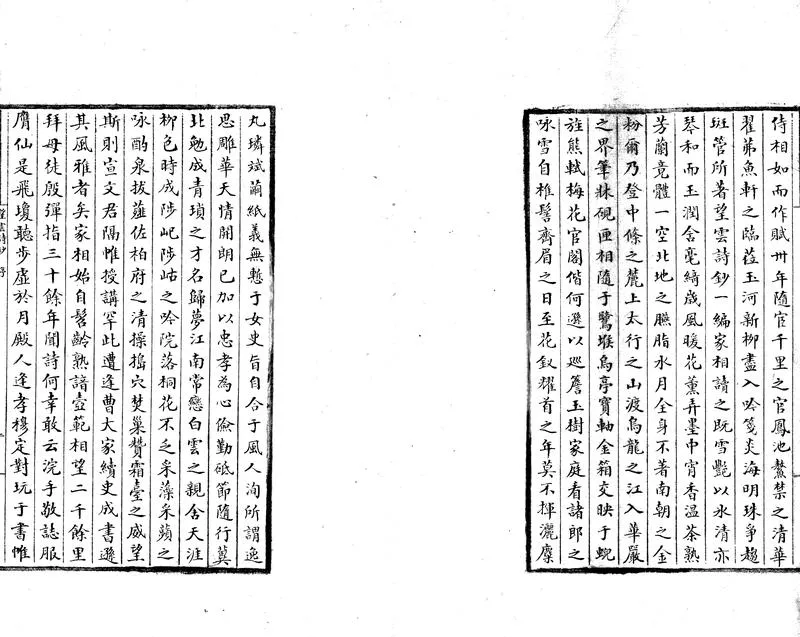 侍相如而作賦卅年隨宦千里之官鳳池鰲禁之清華
翟茀魚軒之臨莅玉河新柳盡入吟箋炎海明珠爭趨
斑管所著望雲詩鈔一編家相請之既雪艷以冰清亦
琴和而玉潤含毫綺歲風暖花薰弄墨中宵香温茶熟
芳蘭竟體一空北地之臙脂水月全身不著南朝之金
粉爾乃登中條之麓上太行之山渡烏龍之江入華嚴
之界筆牀硯匣相隨于鷺堠烏亭寶軸金箱交映于蜺
旌熊軾梅花官閣偕何遜以巡簷玉樹家庭看諸郎之
咏雪自椎髻齊眉之日至花釵耀首之年莫不揮灑麋
丸璘斌繭紙義無慙于女史旨自合于風人洵所謂逸
思雕華天情開朗已加以忠孝為心儉勤砥節隨行莫
北勉成青瑣之才名歸夢江南常戀白雲之親舍天涯
柳色時成陟屺陟岵之吟院落桐花不乏采藻采蘋之
咏酌泉拔薤佐柏府之清操搗穴焚巢贊霜臺之威望
斯則宣文君隔帷授講罕此遭逢曹大家續史成書遜
其風雅者矣家相始自髫齡熟諳壼範相望二千餘里
拜母徒殷彈指三十餘年聞詩何幸敢云浣手敬誌服
膺仙是飛瓊聽步虛於月殿人逢孝穆定對玩于書帷
望雲詩鈔 序